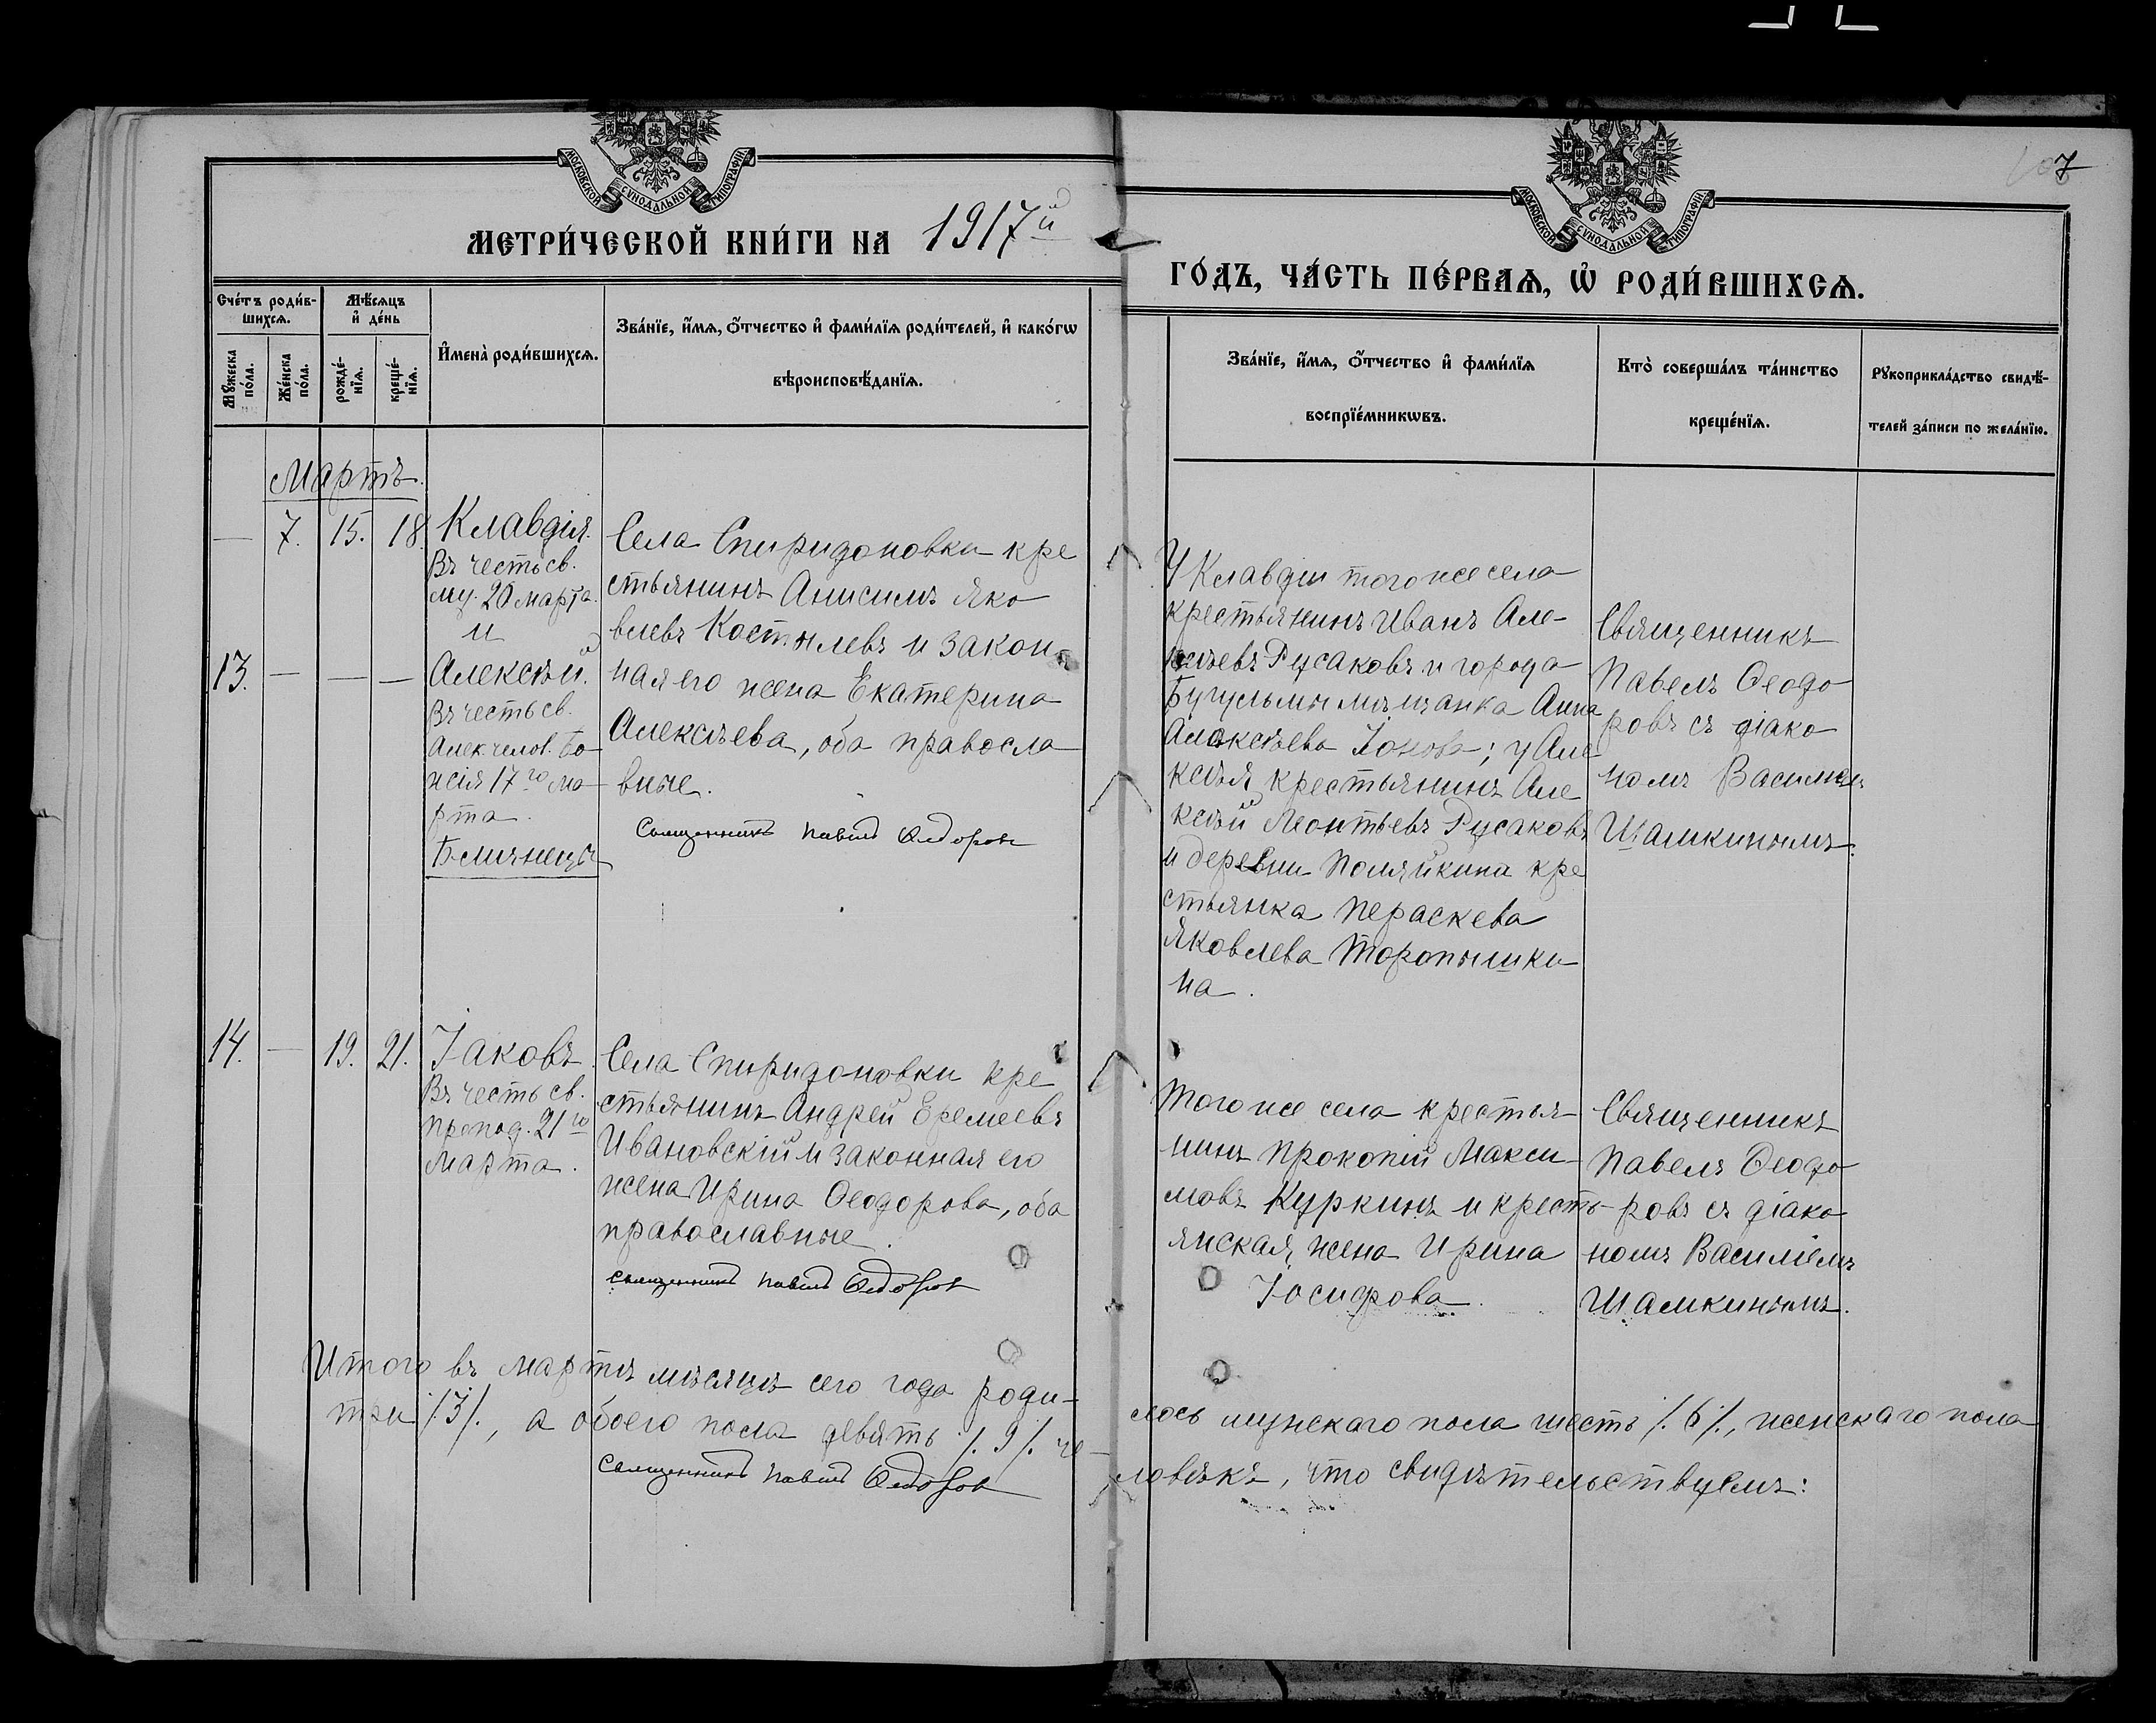 107
МОСКОВСКОЙ СѴНОДАЛЬНОЙ ТИПОГРАФІИ.
МОСКОВСКОЙ СѴНОДАЛЬНОЙ ТИПОГРАФІИ.
МЕТРИ́ЧЕСКОЙ КНИ́ГИ НА 1917й
ГО́ДЪ, ЧА́СТЬ ПЕ́РВАѦ, Ѡ҆ РОДИ́ВШИХСѦ.
Сче́тъ роди́в-
шихсѧ.
Мѣ́сяцъ
и҆ де́нь
Мꙋ́жеска
по́ла.
Же́нска
по́ла.
рожде́-
нїѧ.
креще́-
нїѧ.
И҆мена̀ роди́вшихсѧ.
Зва́нїе, и҆́мѧ, ѻ҆́тчество и҆ фами́лїѧ роди́телей, и҆ како́гѡ
вѣроисповѣ́данїѧ.
Зва́нїе, и҆́мѧ, ѻ҆́тчество и҆ фами́лїѧ
воспрїе́мникѡвъ.
Кто̀ соверша́лъ та́инство
креще́нїѧ.
Рꙋкоприкла́дство свидѣ́-
телей за́писи по жела́нїю.
Мартъ.
— 7. 15. 18.
Клавдія.
Въ честь св.
муч. 20 марта.
и
13. — — —
Алексѣй.
Въ честь св.
Алек. челов. Бо-
жія 17го ма-
рта.
Близнецы
Села Спиридоновки кре
стьянинъ Анисимъ Яко
влевъ Костылевъ и закон-
ная его жена Екатерина
Алексѣева, оба правосла
вные.
Священникъ Павелъ Ѳедоровъ
У Клавдіи того же села
крестьянинъ Иванъ Але-
ксѣевъ Русаковъ и города
Бугульмы мѣщанка Анна
Алексѣева Іонова; у Але
ксѣя крестьянинъ Але
ксѣй Леонтьевъ Русаковъ
и деревни Поляйкина кре
стьянка Пераскева
Яковлева Торопышки
на.
Священникъ
Павелъ Ѳеодо
ровъ съ діако
номъ Василіемъ
Шамкинымъ.
14. — 19. 21.
Іаковъ.
Въ честь св.
препод. 21го
Марта.
Села Спиридоновки кре
стьянинъ Андрей Еремеевъ
Ивановскій и законная его
жена Ирина Ѳеодорова, оба
православные.
Священникъ Павелъ Ѳедоровъ
Того же села крестья-
нинъ Прокопій Макси-
мовъ Куркинъ и кресть-
янская жена Ирина
Іосифова.
Священникъ
Павелъ Ѳеодо
ровъ съ діако
номъ Василіемъ
Шамкинымъ.
Итого въ мартѣ мѣсяцѣ сего года роди-
лось мужскаго пола шесть /.6/., женскаго пола
три /.3/., а обоего пола девять /.9/. че-
ловѣкъ, что свидѣтельствуемъ:
Священникъ Павелъ Ѳедоровъ